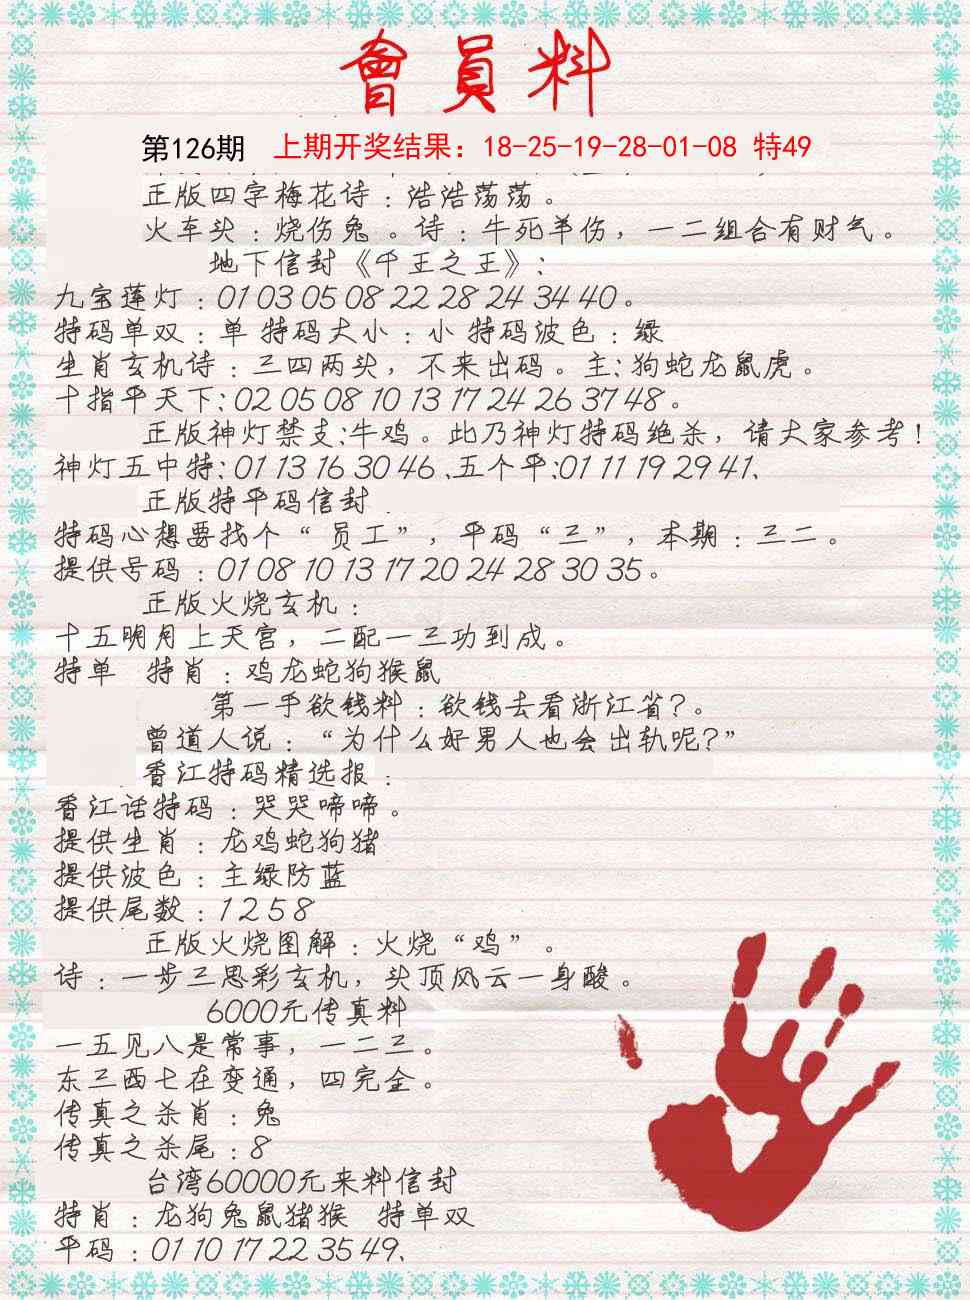 會員料
第126期 上期开奖结果：18-25-19-28-01-08 特49
正版四字梅花诗：浩浩荡荡。
火车头：烧伤兔 。诗：牛死羊伤，一二组合有财气。
地下信封《千王之王》：
九宝莲灯：01 03 05 08 22 28 24 34 40。
特码单双：单 特码大小：小 特码波色：绿
生肖玄机诗：三四两头，不来出码。主：狗蛇龙鼠虎。
十指平天下：02 05 08 10 13 17 24 26 37 48。
正版神灯禁支：牛鸡。此乃神灯特码绝杀，请大家参考！
神灯五中特：01 13 16 30 46 、五个平：01 11 19 29 41、
正版特平码信封
特码心想要找个“ 员工”，平码“三”，本期：三二。
提供号码：01 08 10 13 17 20 24 28 30 35。
正版火烧玄机：
十五明月上天宫，二配一三功到成。
特单 特肖：鸡龙蛇狗猴鼠
第一手欲钱料：欲钱去看浙江省？。
曾道人说：“为什么好男人也会出轨呢？”
香江特码精选报：
香江话特码：哭哭啼啼。
提供生肖：龙鸡蛇狗猪
提供波色：主绿防蓝
提供尾数：1 2 5 8
正版火烧图解：火烧“鸡”。
诗：一步三思彩玄机，头顶风云一身酸。
6000元传真料
一五见八是常事，一二三。
东三西七在变通，四完全。
传真之杀肖：兔
传真之杀尾：8
台湾60000元来料信封
特肖：龙狗兔鼠猪猴 特单双
平码：01 10 17 22 35 49、